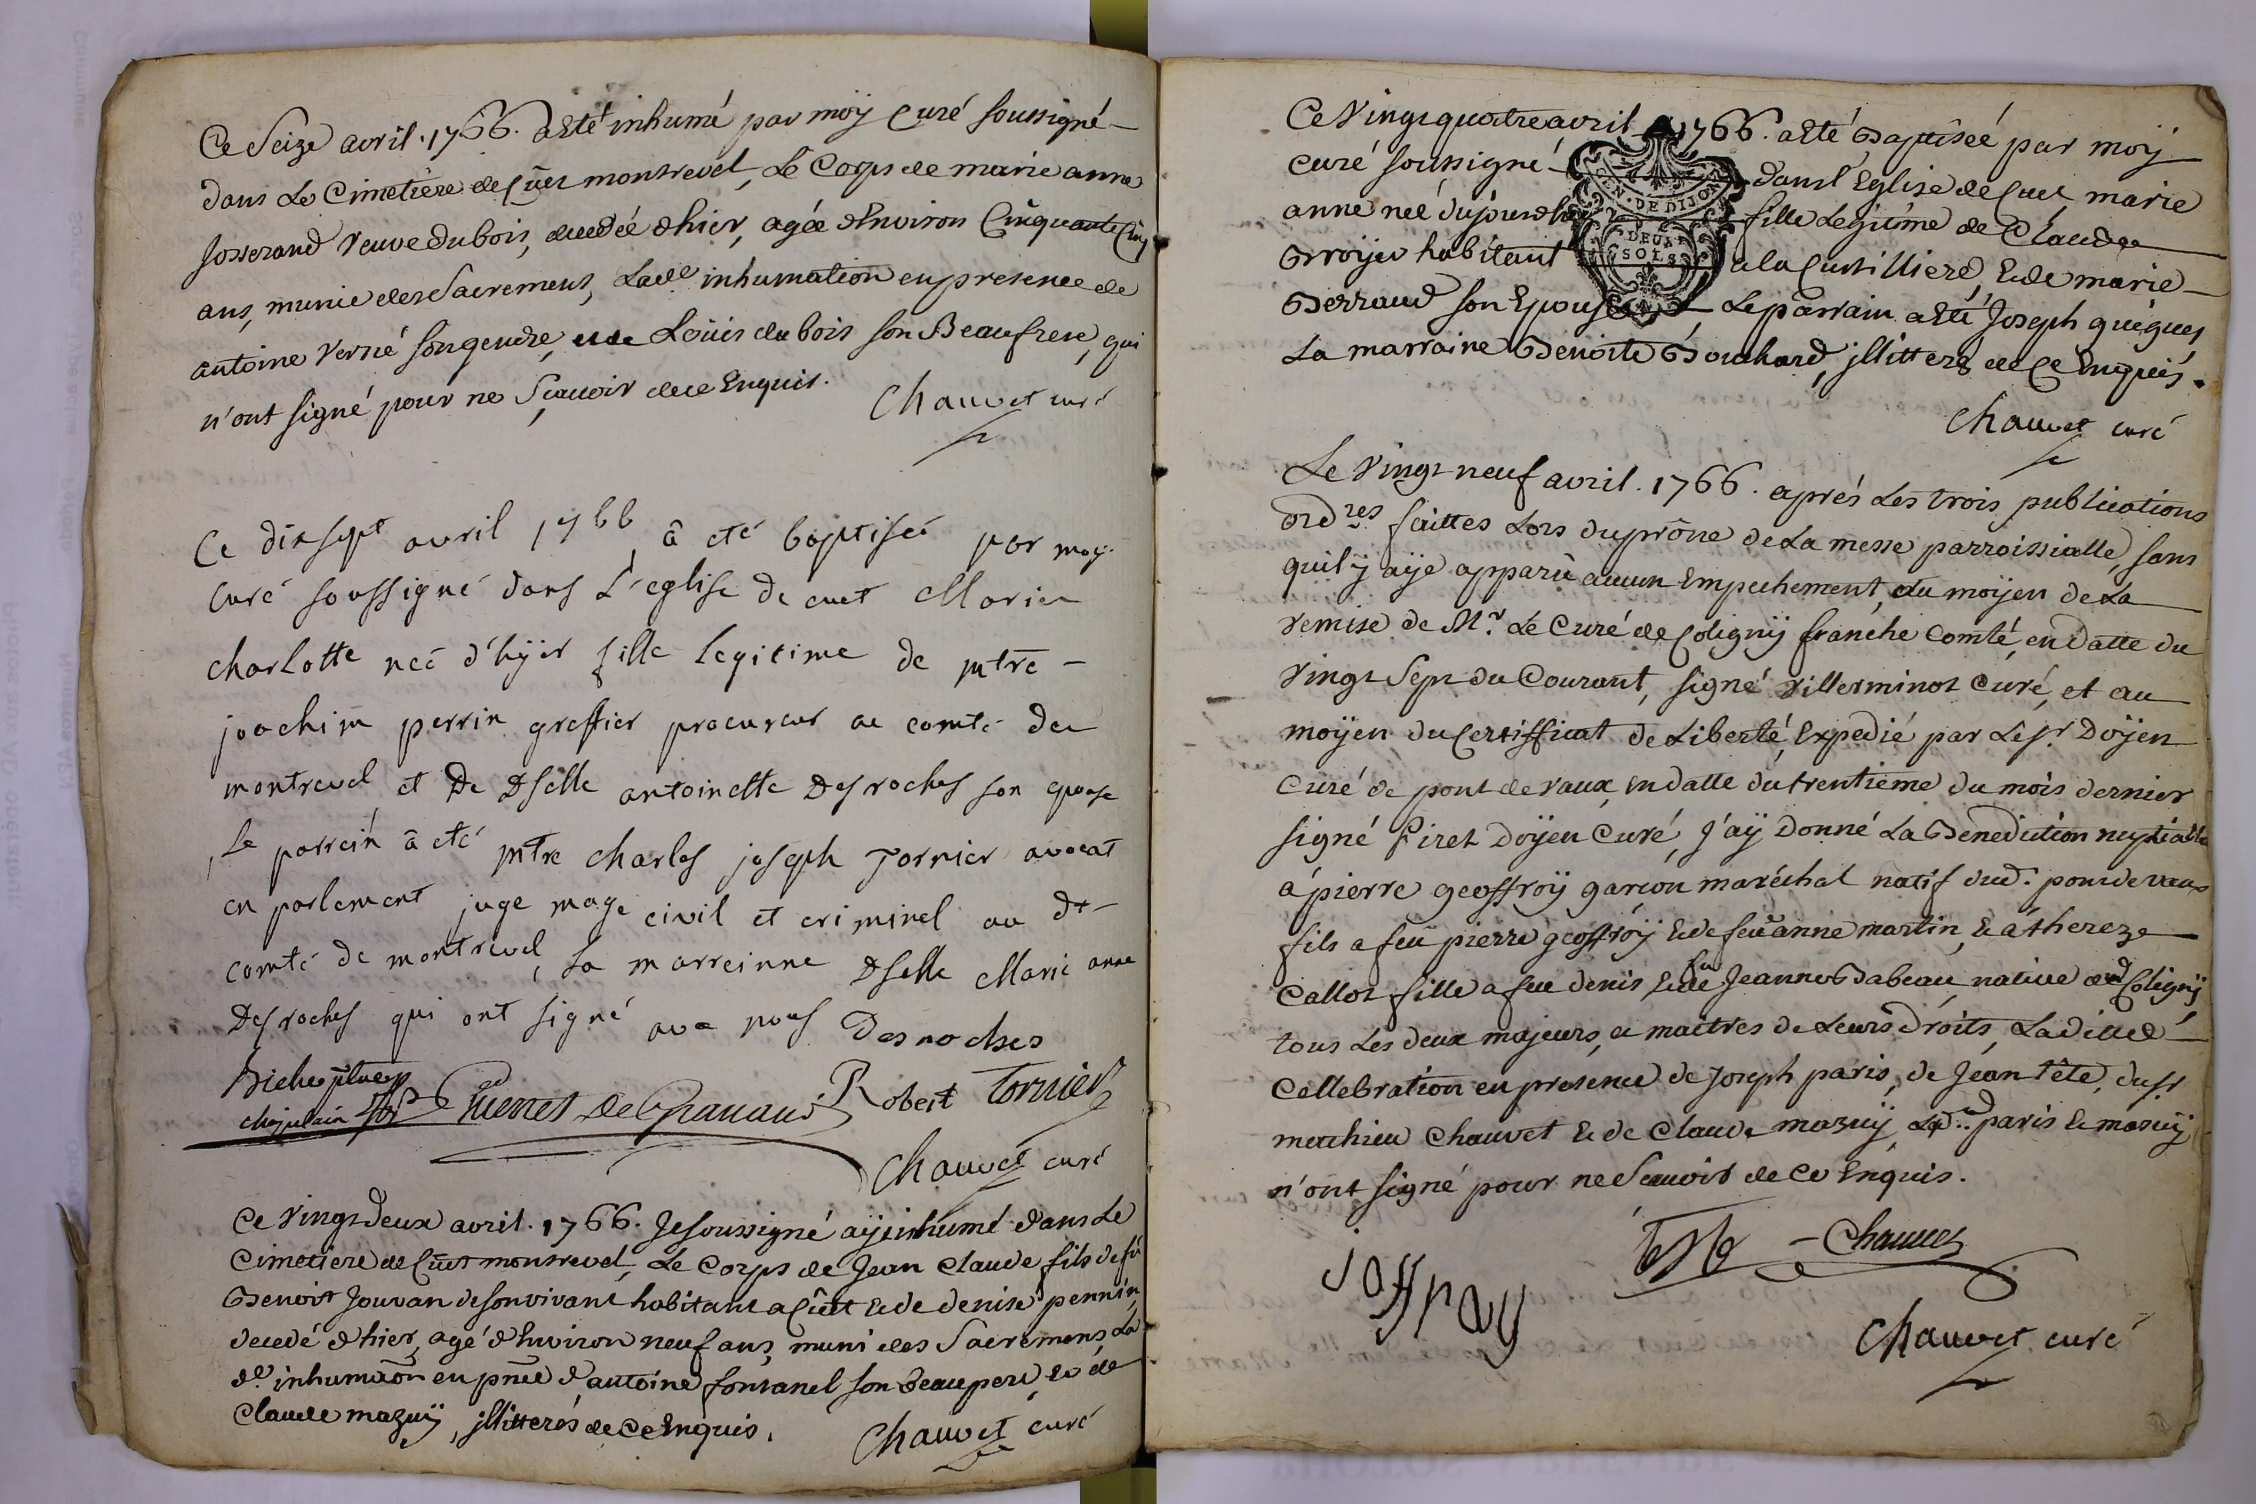 Ce Seize avril. 1766. a Eté inhumé par moÿ Curé soussigné
dans Le Cimetiere de Cuët montrevel, Le Corps de marie anne
Josserand veuve dubois, decedée d'hier, agée d'Environ Cinquante Cinq
ans, munie des Sacremens, Lade inhumation en presence de
antoine Vernié son gendre, et de Loüis du bois son Beaufrere, qui
n'ont signé pour ne Scavoir de ce Enquis.
Chauvet curé
Ce dix sept avril 1766 â eté baptiseé par moy
curé soussigné dans L'eglise de cuet Marie
charlotte neé d'hÿer fille legitime de mtre
joachim perrin greffier procureur au comté de
montrevel et De Dselle antoinette Desroches son epouse
Le parrein â eté mtre charles joseph Tornier avocat
en parlement juge mage civil et criminel au dt
comté de montrevel La marreinne Dselle Marie anne
Desroches qui ont signé avec nous
Desroches
chapelain
Robert Tornier
Chauvet curé
Ce vingt deux avril. 1766. Je soussigné aÿ inhumé dans Le
Cimetiere de Cuët montrevel, Le Corps de Jean Claude fils de fû
Benoit Jouvan de son vivant habitant a Cuët et de denise pennin
decedé d'hier, agé d'Environ neuf ans, muni des Sacremens La
de inhumaõn en pnce d'antoine fontanel son beaupere, et de
Claude mazuÿ, jllitterés de ce Enquis.
Chauvet curé
Ce Vingt quatre avril 1766. a Eté Baptiseé par moÿ
curé soussigné dans l'Eglise de Cuet, marie
anne neé dujourdhuy fille Legitime de Claude
Broÿer habitant a la Curtilliere, et de marie
Berraud son Epouse, Le parrain a Eté Joseph guigues
La marraine Benoite Bouchard, jllitterés de Ce Enquis.
GEN. DE DIJON
DEUX
SOLS
Chauvet curé
Le Vingt neuf avril. 1766. aprés Les trois publications
ordres faittes Lors du prône de La messe parroissialle, sans
quil ÿ aÿe apparû aucun Empechement, au moÿen de La
remise de Mr. Le Curé de Coligny franche Comté, en Datte du
Vingt Sept du Courant, signé Villerminot Curé, et au
moÿen du Certifficat de Liberté, Expedié par Le Sr. Doÿen
Curé de pont de vaux, en datte du trentiéme du mois dernier
signé Firet Doÿen Curé, J'aÿ Donné La Benediction nuptialle
a pierre geoffroÿ garcon maréchal natif dud. pont de vaux
fils a feû pierre geoffroÿ et de feû anne martin, et a thereze
Callot fille a feu denis et de fû Jeanne Babeau, native dud Coligny
tous Les deux majeurs, et maitres de Leurs Droits, Laditte
Cellebration en presence de Joseph paris, de Jean tête, du Sr
matthieu Chauvet et de Claude mazuÿ, Lesd. paris et mazuÿ
n'ont signé pour ne Scavoir de Ce Enquis.
joffray teste Chauvet
Chauvet curé